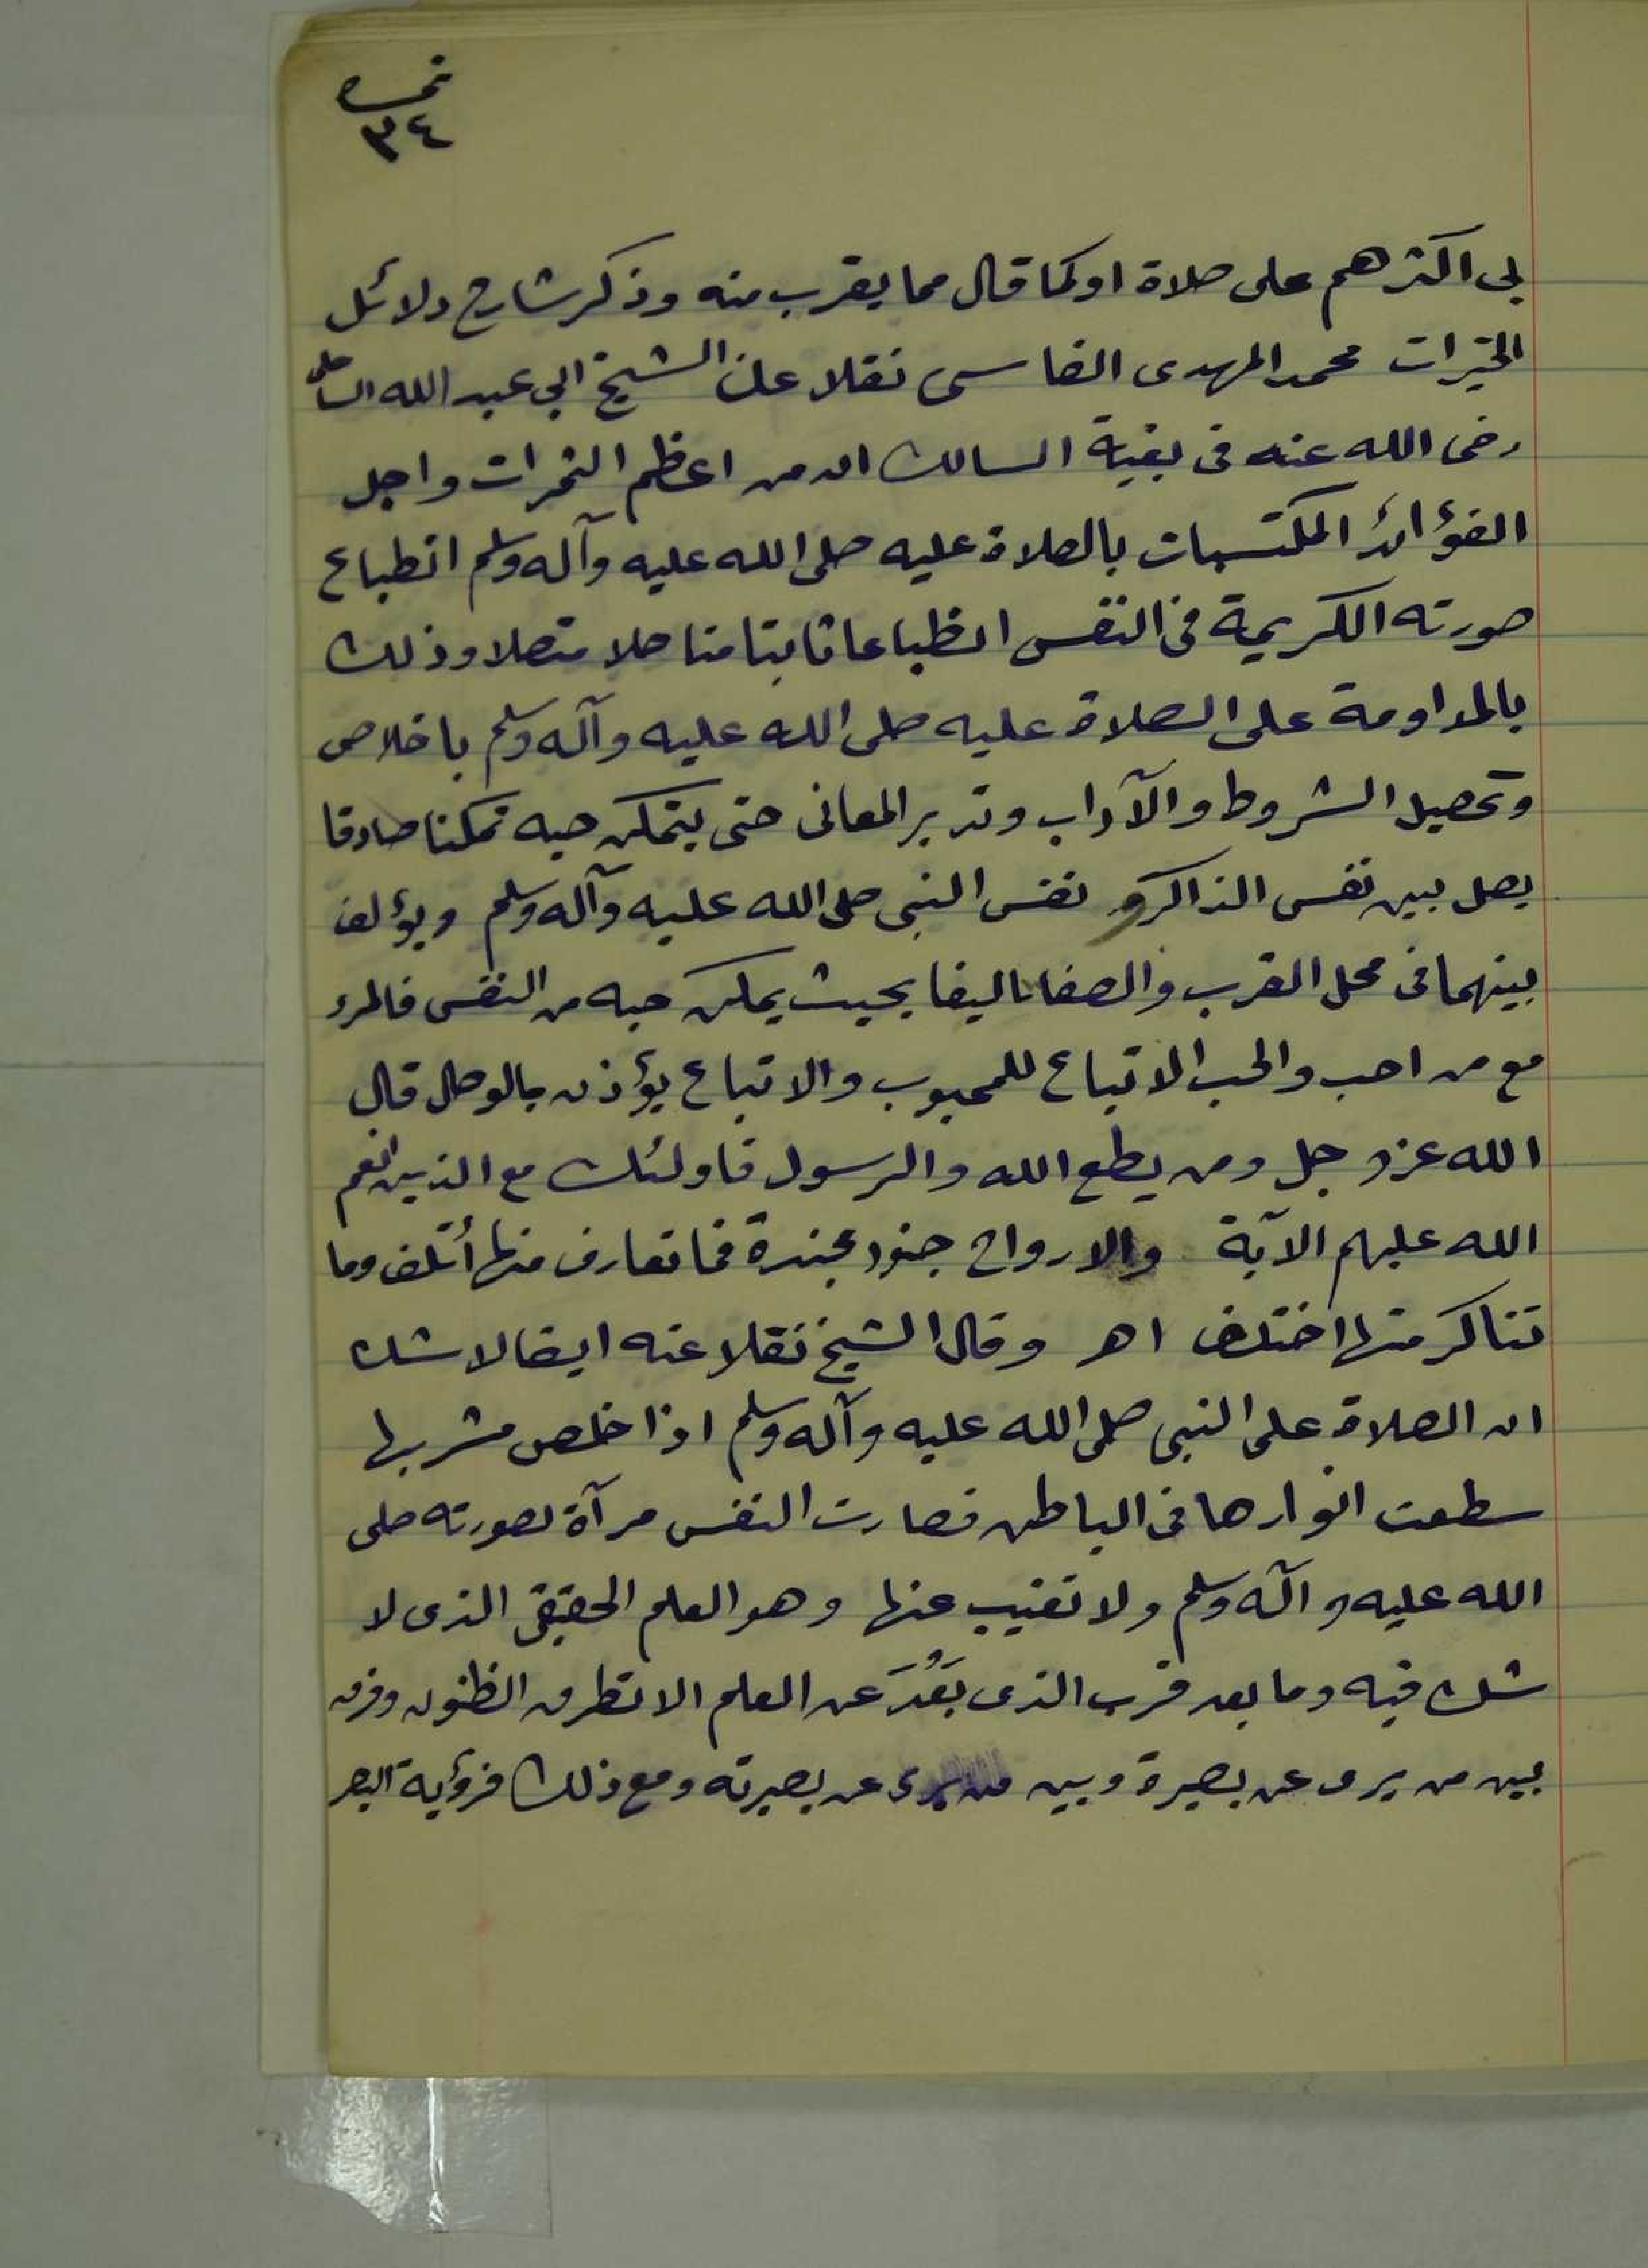 نمره
٣٤
بى اكثرهم على صلاة او كما قال مما يقرب منه وذكر شارح دلائل
الخيرات محمد المهدى الفاسى نقلا عن الشيخ ابى عبد الله الساحلى
رضى الله عنه فى بغية السالك ان من اعظم الثمرات واجل
الفوائد المكتسبات بالصلاة عليه صلى الله عليه وآله وسلم انطباع
صورته الكريمة فى النفس انطباعا ثابتا متاصلا متصلا وذلك
بالمداومة على الصلاة عليه صلى الله عليه وآله وسلم باخلاص
وتحصيل الشروط والآداب وتدبر المعانى حتى يتمكن حبه تمكنا صادقا
يصل بين نفس الذاكر و نفس النبى صلى الله عليه وآله وسلم ويؤلف
بينهما فى محل القرب والصفا تاليفا بحيث يمكن حبه من النفس فالمرء
مع من احب والحب الاتباع للمحبوب والاتباع يؤذن بالوصال قال
الله عز وجل ومن يطع الله والرسول فاولئك مع الذين انعم
الله عليهم الآية والارواح جنود مجندة فما تعارف منها أتلف وما
تناكر منها اختلف اهـ وقال الشيخ نقلا عنه ايضا لا شك
ان الصلاة على النبى صلى الله عليه وآله وسلم اذا خلص مشربها
سطعت انوارها فى الباطن فصارت النفس مرآة لصورته صلى
الله عليه وآله وسلم ولا تغيب عنها وهو العلم الحقيقى الذى لا
شك فيه وما بعد قرب الذى بَعُدَ عن العلم الا تطرق الظنون وفرق
بين من يرى عن بصيرة وبين من يرى عن بصيرته ومع ذلك فرؤية البصر